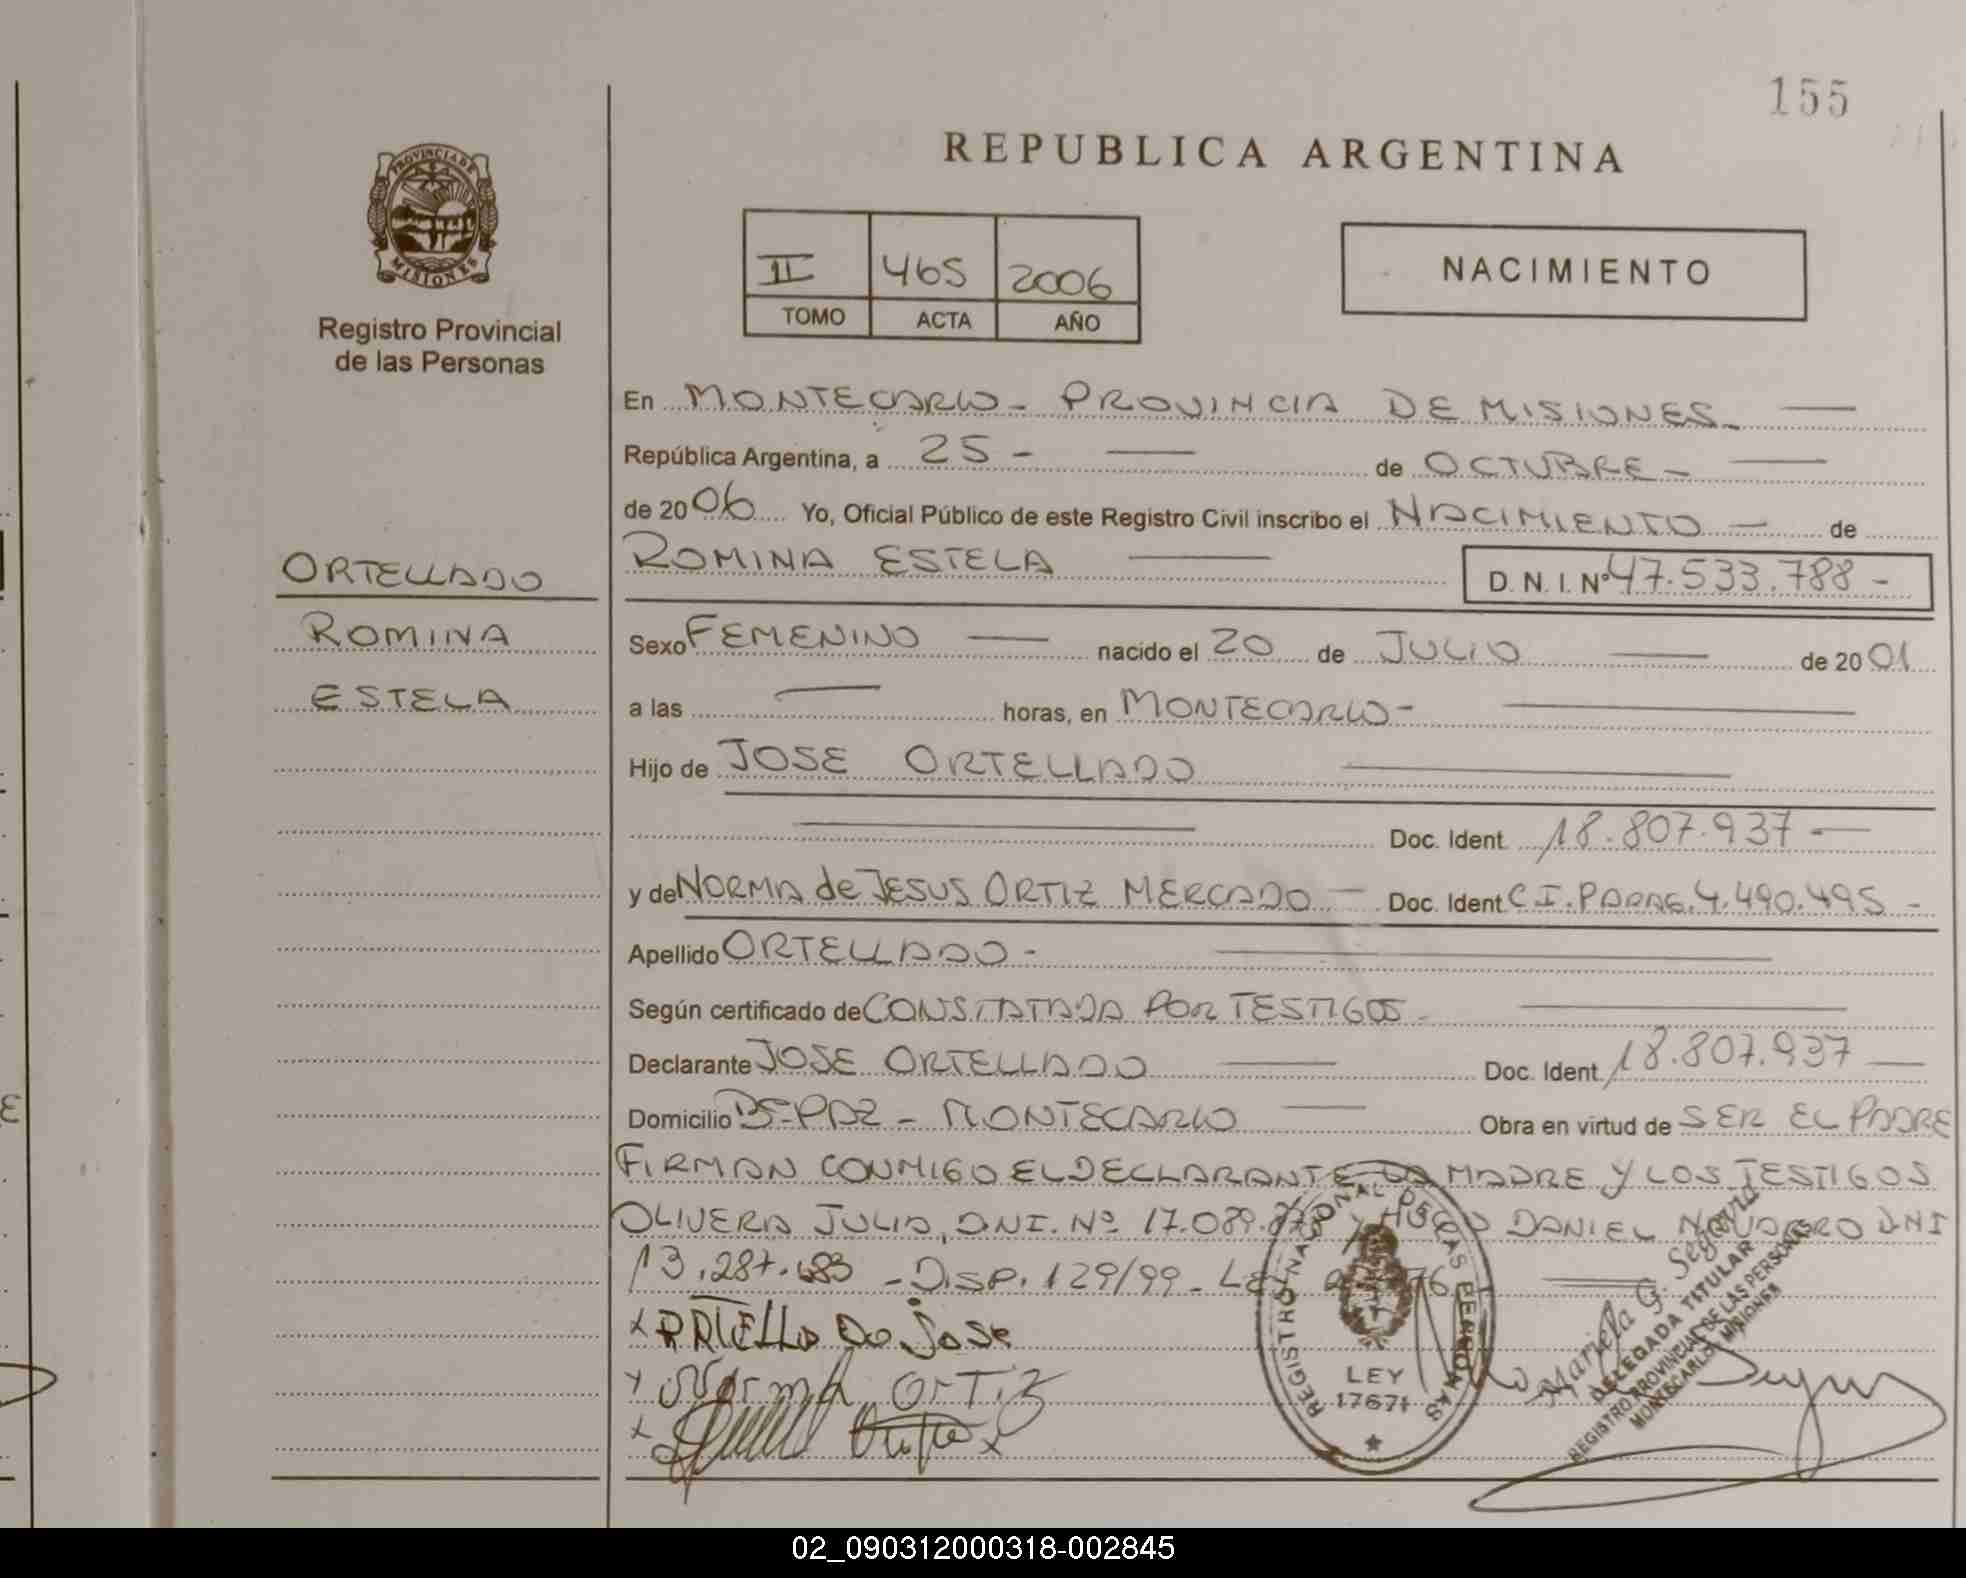 155
REPUBLICA ARGENTINA
PROVINCIA DE MISIONES
Registro Provincial
de las Personas
II 465 2006
TOMO ACTA AÑO
NACIMIENTO
En MONTECARLO - PROVINCIA DE MISIONES -
República Argentina, a 25 - de OCTUBRE -
de 2006 Yo, Oficial Público de este Registro Civil inscribo el NACIMIENTO - de
ORTELLADO
ROMINA
ESTELA
ROMINA ESTELA D. N. I. Nº 47.533.788 -
Sexo FEMENINO nacido el 20 de JULIO de 2001
a las horas, en MONTECARLO -
Hijo de JOSE ORTELLADO
Doc. Ident. 18.807.937 -
y de NORMA de JESUS ORTIZ MERCADO - Doc. Ident. C.I. PARAG. 4.490.495 -
Apellido ORTELLADO -
Según certificado de CONSTATADA POR TESTIGOS -
Declarante JOSE ORTELLADO Doc. Ident. 18.807.937
Domicilio Bº PAZ - MONTECARLO Obra en virtud de SER EL PADRE
FIRMAN CONMIGO EL DECLARANTE LA MADRE Y LOS TESTIGOS
OLIVERA JULIA, DNI. Nº 17.089. Y DANIEL DNI
13.287.683 - DISP. 129/99 -
x JOSE
x Norma ORTIZ
REGISTRO NACIONAL DE LAS PERSONAS
LEY
17671
Mariela G. Segovia
DELEGADA TITULAR
REGISTRO PROVINCIAL DE LAS PERSONAS
MONTECARLO - MISIONES
02_090312000318-002845